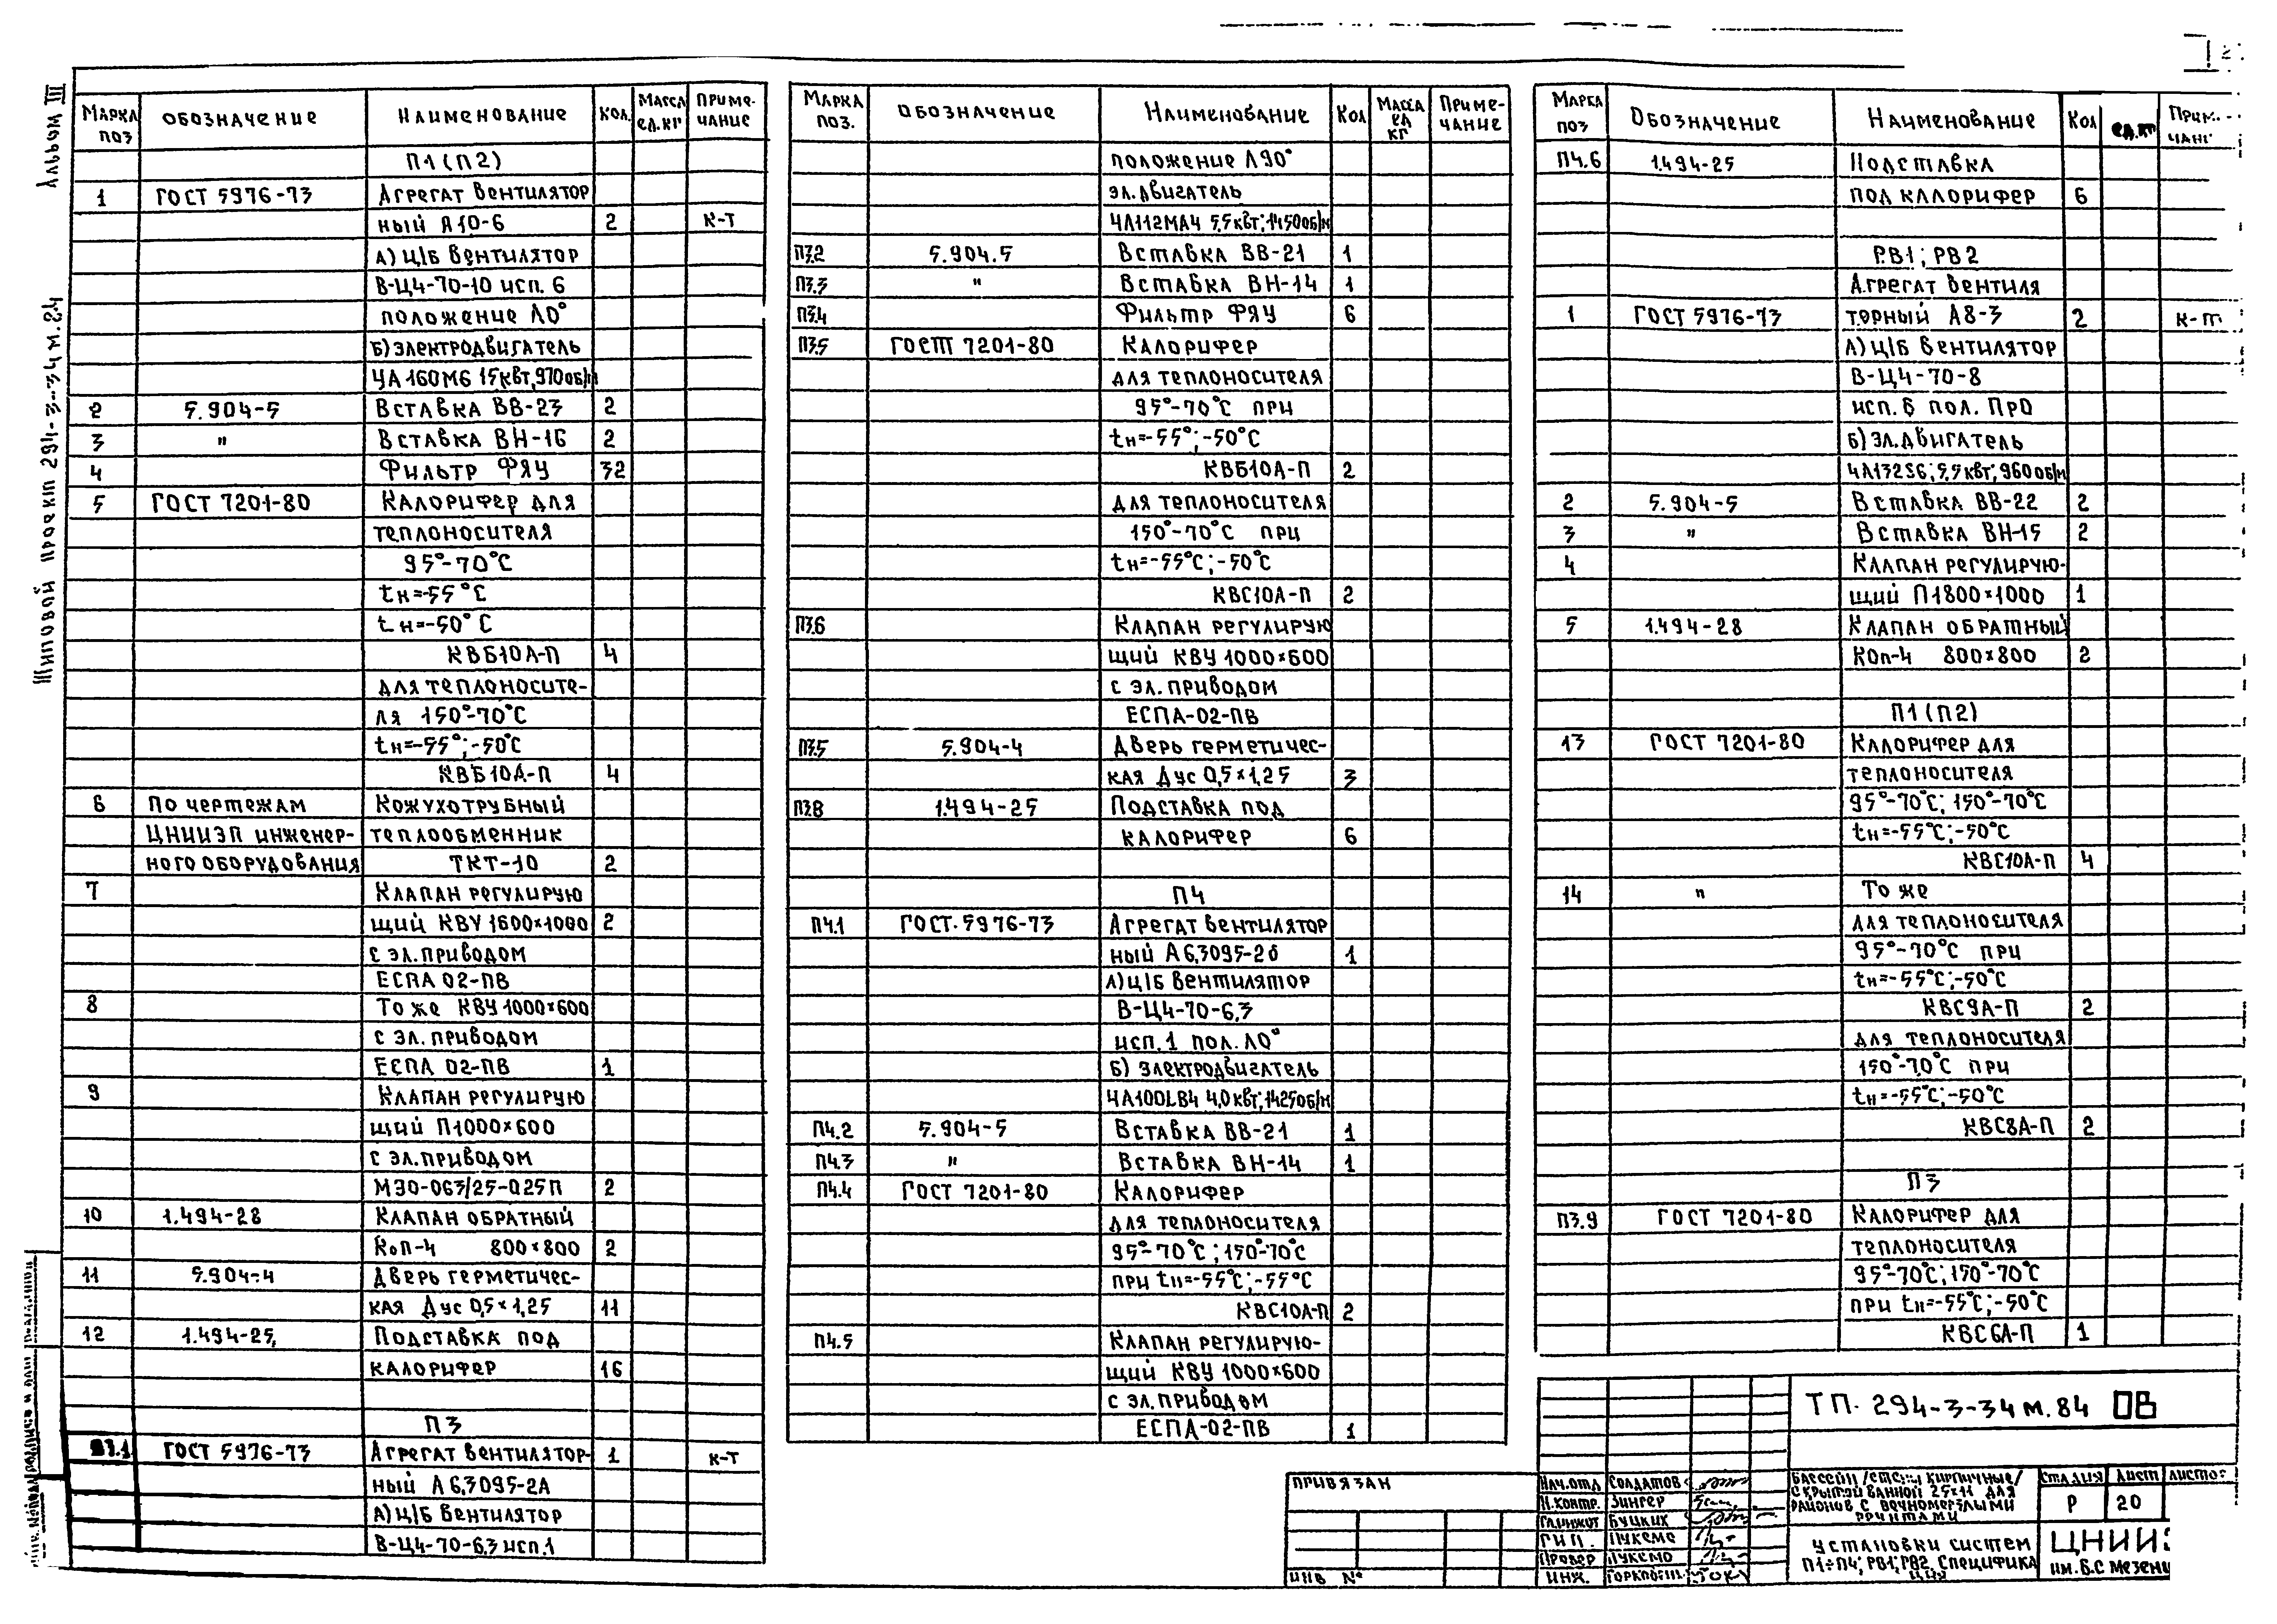 Альбом III
Типовой проект 294-3-34м.84
Марка поз | Обозначение | Наименование | Кол. | Масса ед.кг | Приме-чание
П1 (П2)
1 | ГОСТ 5976-73 | Агрегат вентилятор
ный А10-6 | 2 | к-т
а) ц/б вентилятор
В-Ц4-70-10 исп. 6
положение Л0°
б) электродвигатель
4А160М6 15квт, 970об/м
2 | 5.904-5 | Вставка ВВ-23 | 2
3 | " | Вставка ВН-16 | 2
4 | Фильтр ФЯУ | 32
5 | ГОСТ 7201-80 | Калорифер для
теплоносителя
95°-70°С
tн=-55°С
tн=-50°С
КВБ10А-П | 4
для теплоносите-
ля 150°-70°С
tн=-55°;-50°С
КВБ10А-П | 4
6 | По чертежам | Кожухотрубный
ЦНИИЭП инженер- | теплообменник
ного оборудования | ТКТ-10 | 2
7 | Клапан регулирую
щий КВУ 1600×1000 | 2
с эл.приводом
ЕСПА 02-ПВ
8 | То же КВУ 1000×600
с эл. приводом
ЕСПА 02-ПВ | 1
9 | Клапан регулирую
щий П1000×600
с эл.приводом
МЭО-063/25-025П | 2
10 | 1.494-28 | Клапан обратный
Коп-4 800×800 | 2
11 | 5.904-4 | Дверь герметичес-
кая Дус 0,5×1,25 | 11
12 | 1.494-25, | Подставка под
калорифер | 16
П3
П3.1 | ГОСТ 5976-73 | Агрегат вентилятор- | 1 | к-т
ный А 6,3095-2А
а) ц/б вентилятор
В-Ц4-70-6,3 исп.1
Марка поз. | Обозначение | Наименование | Кол | Масса ед кг | Приме-чание
положение Л90°
эл.двигатель
4А112МА4 5,5квт; 1450об/м
П3.2 | 5.904.5 | Вставка ВВ-21 | 1
П3.3 | " | Вставка ВН-14 | 1
П3.4 | Фильтр ФЯУ | 6
П3.5 | ГОСТ 7201-80 | Калорифер
для теплоносителя
95°-70°С при
tн=-55°;-50°С
КВБ10А-П | 2
для теплоносителя
150°-70°С при
tн=-55°С;-50°С
КВС10А-П | 2
П3.6 | Клапан регулирую
щий КВУ 1000×600
с эл.приводом
ЕСПА-02-ПВ
П3.5 | 5.904-4 | Дверь герметичес-
кая Дус 0,5×1,25 | 3
П3.8 | 1.494-25 | Подставка под
калорифер | 6
П4
П4.1 | ГОСТ. 5976-73 | Агрегат вентилятор
ный А 6,3095-2б | 1
а) ц/б вентилятор
В-Ц4-70-6,3
исп.1 пол. Л0°
б) электродвигатель
4А100LВ4 4,0квт, 1425об/м
П4.2 | 5.904-5 | Вставка ВВ-21 | 1
П4.3 | " | Вставка ВН-14 | 1
П4.4 | ГОСТ 7201-80 | Калорифер
для теплоносителя
95°-70°С; 150°-70°С
при tн=-55°С;-55°С
КВС10А-П | 2
П4.5 | Клапан регулирую-
щий КВУ 1000×600
с эл.приводом
ЕСПА-02-ПВ | 1
Марка поз | Обозначение | Наименование | Кол | ед.кг | Прим. чание
П4.6 | 1.494-25 | Подставка
под калорифер | 6
РВ1; РВ2
Агрегат вентиля
1 | ГОСТ 5976-73 | торный А8-3 | 2 | к-т
а) ц/б вентилятор
В-Ц4-70-8
исп. 6 пол. Пр0
б) эл.двигатель
4А132S6; 5,5квт; 960об/м
2 | 5.904-5 | Вставка ВВ-22 | 2
3 | " | Вставка ВН-15 | 2
4 | Клапан регулирую-
щий П1800×1000 | 1
5 | 1.494-28 | Клапан обратный
Коп-4 800×800 | 2
П1 (П2)
13 | ГОСТ 7201-80 | Калорифер для
теплоносителя
95°-70°С; 150°-70°С
tн=-55°С;-50°С
КВС10А-П | 4
14 | " | То же
для теплоносителя
95°-70°С при
tн=-55°С;-50°С
КВС9А-П | 2
для теплоносителя
150°-70°С при
tн=-55°С;-50°С
КВС8А-П | 2
П3
П3.9 | ГОСТ 7201-80 | Калорифер для
теплоносителя
95°-70°С; 150°-70°С
при tн=-55°С;-50°С
КВС6А-П | 1
ТП. 294-3-34м.84 ОВ
Привязан
Инв №
Нач.отд Солдатов
Н.контр. Зингер
Гл.инжот Буцких
ГИП. Лукемо
Провер Лукемо
Инж.
Бассейн /стены кирпичные/
с крытой ванной 25×11 для
районов с вечномерзлыми
грунтами
Стадия | Лист | Листов
Р | 20
Установки систем
П1÷П4; РВ1; РВ2. Специфика
ция
ЦНИИЭ
им. Б.С Мезен